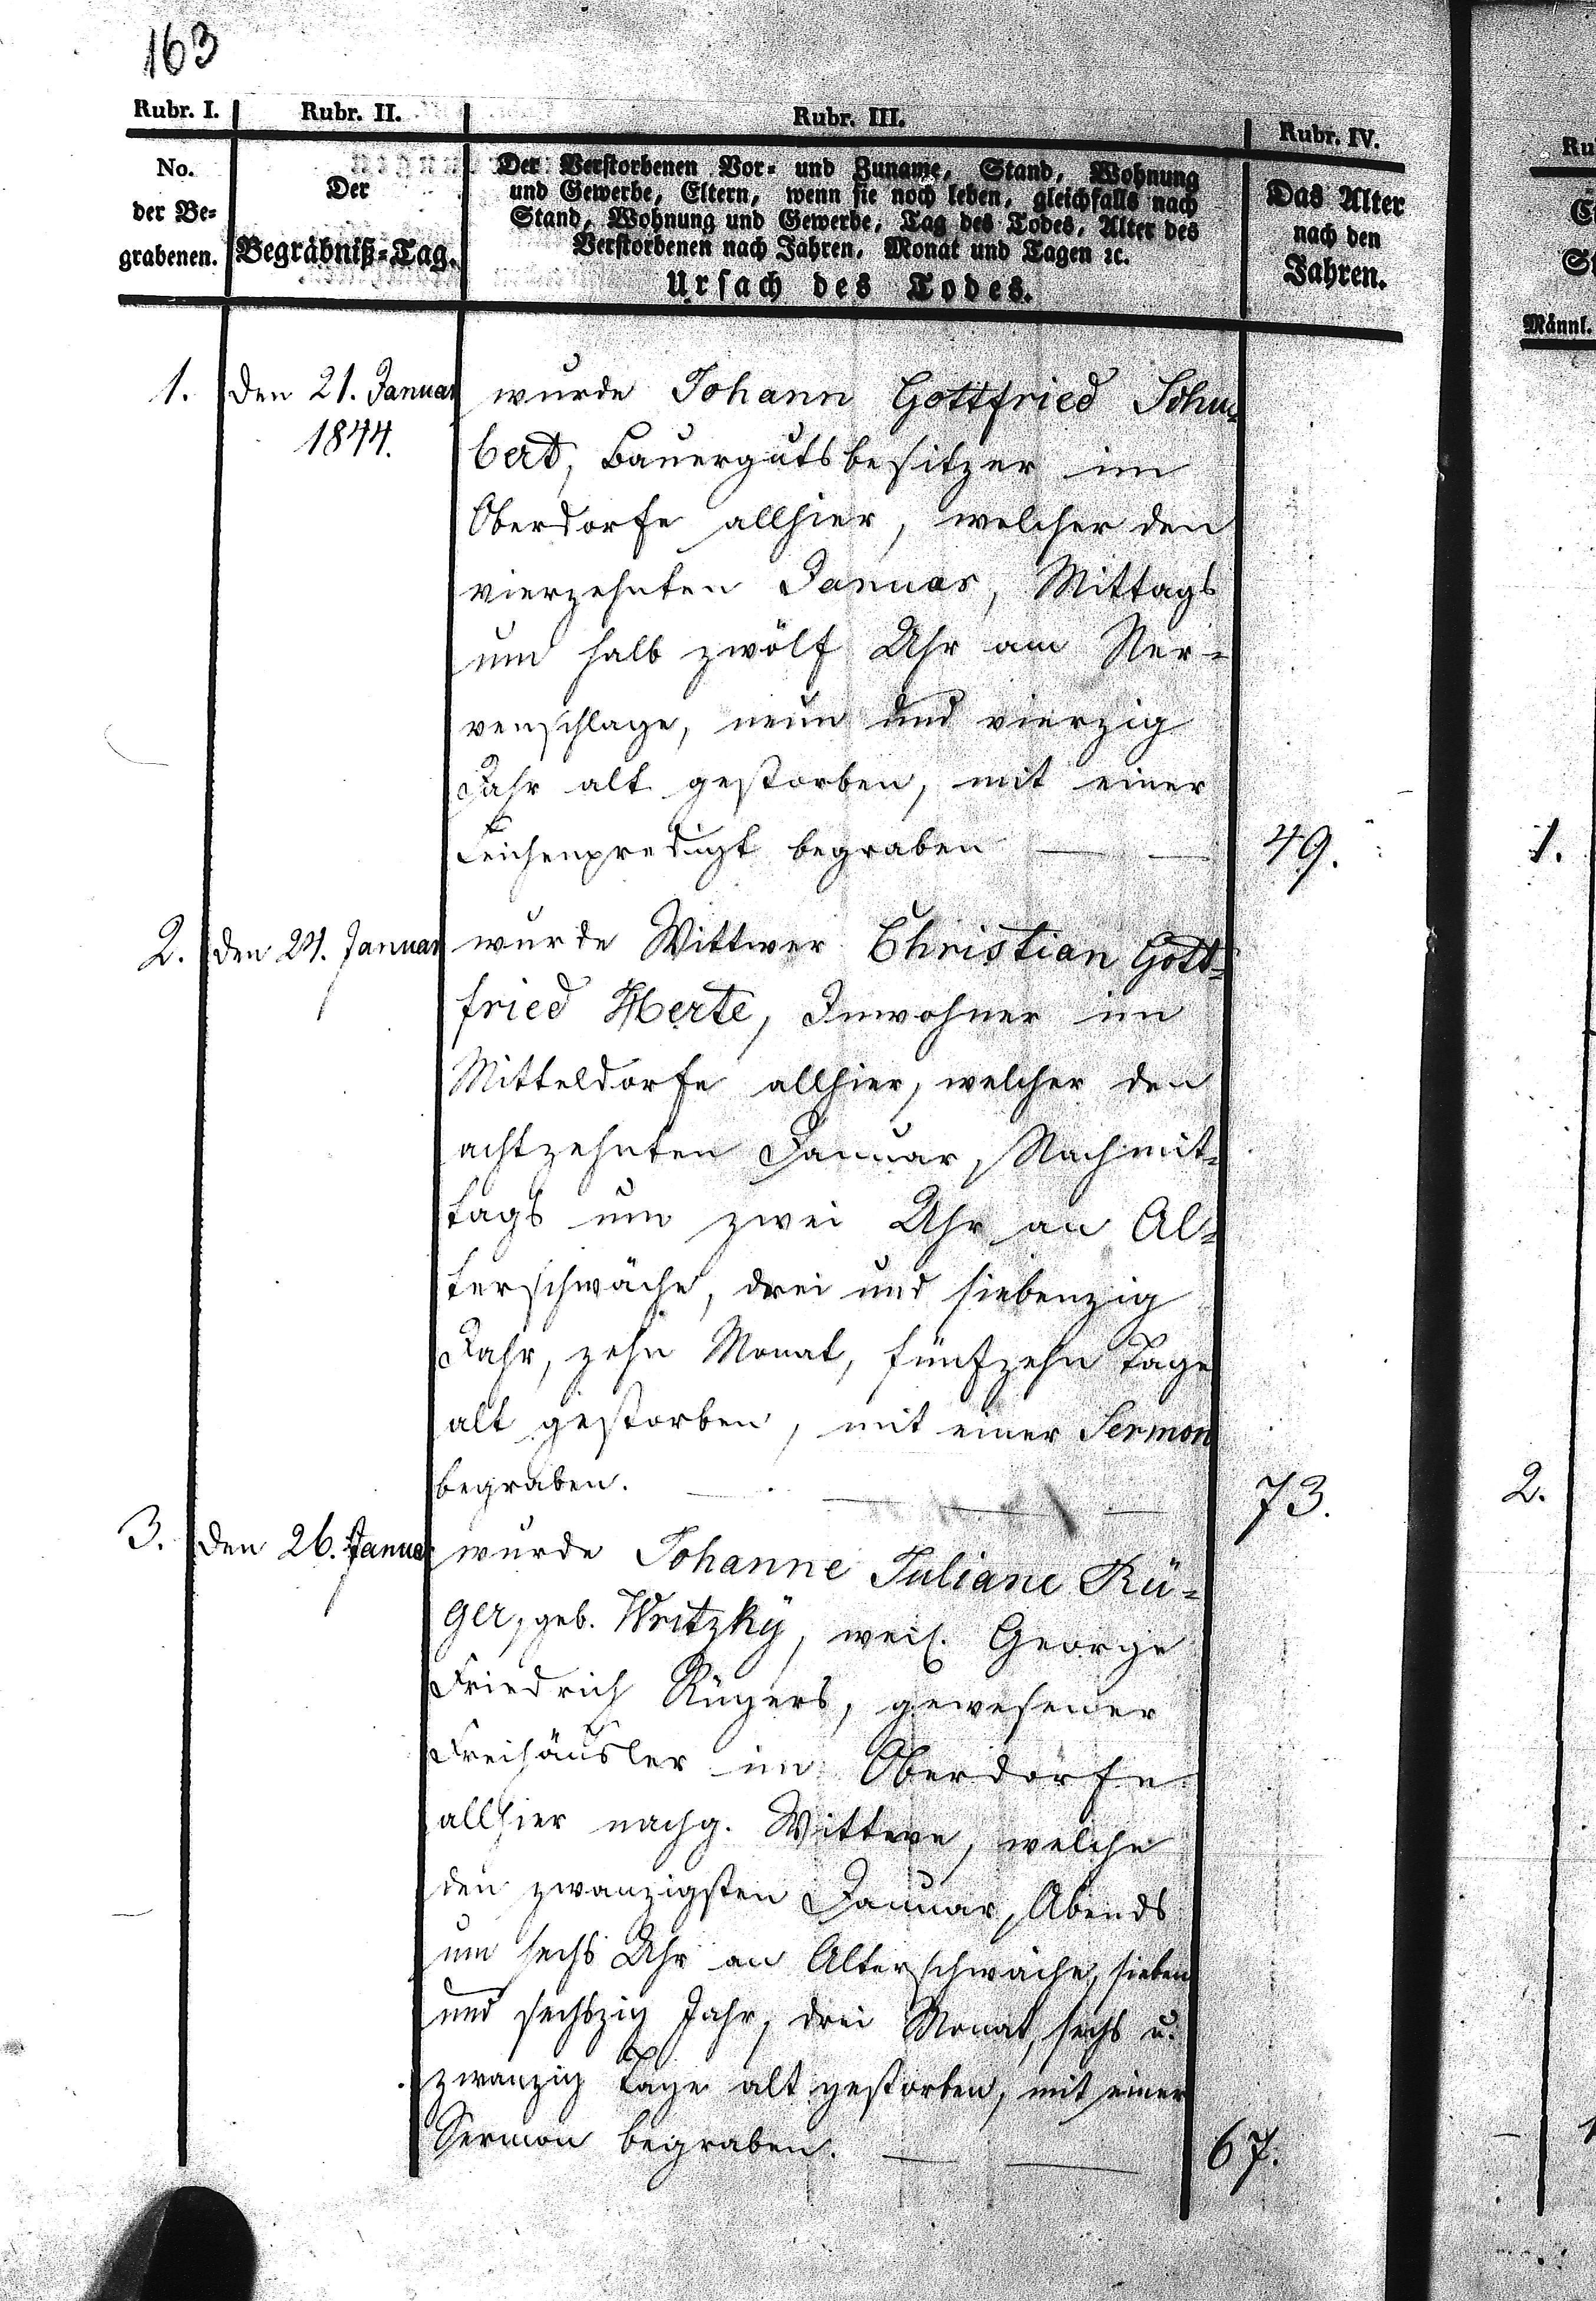 163
Rubr. I. Rubr. II. Rubr. III. Rubr. IV.
No.
der Be-
grabenen.
Der
Begräbniß-Tag.
Der Verstorbenen Vor- und Zuname, Stand, Wohnung
und Gewerbe, Eltern, wenn sie noch leben, gleichfalls nach
Stand, Wohnung und Gewerbe, Tag des Todes, Alter des
Verstorbenen nach Jahren, Monat und Tagen ꝛc.
Ursach des Todes.
Das Alter
nach den
Jahren.
Männl.
1. den 21. Januar wurde Johann Gottfried Schu-
1844. bert, Bauergutsbesitzer im
Oberdorfe allhier, welcher den
vierzehnten Januar, Mittags
um halb zwölf Uhr am Ner-
venschlage, neun und vierzig
Jahr alt gestorben, mit einer
Leichenpredigt begraben — — 49. 1.
2. den 21. Januar wurde Wittwer Christian Gott-
fried Herte, Inwohner im
Mitteldorfe allhier, welcher den
achtzehnten Januar, Nachmit-
tags um zwei Uhr an Al-
terschwäche, drei und siebenzig
Jahr, zehn Monat, fünfzehn Tage
alt gestorben, mit einer Sermon
begraben. — — — 73. 2.
3. den 26. Januar wurde Johanne Juliane Rü-
ger, geb. Writzky, weil. George
Friedrich Rügers, gewesener
Freihäusler im Oberdorfe
allhier nachg. Wittwe, welche
den zwanzigsten Januar, Abends
um sechs Uhr an Alterschwäche, sieben
und sechszig Jahr, drei Monat, sechs u.
zwanzig Tage alt gestorben, mit einer
Sermon begraben. — — 67.